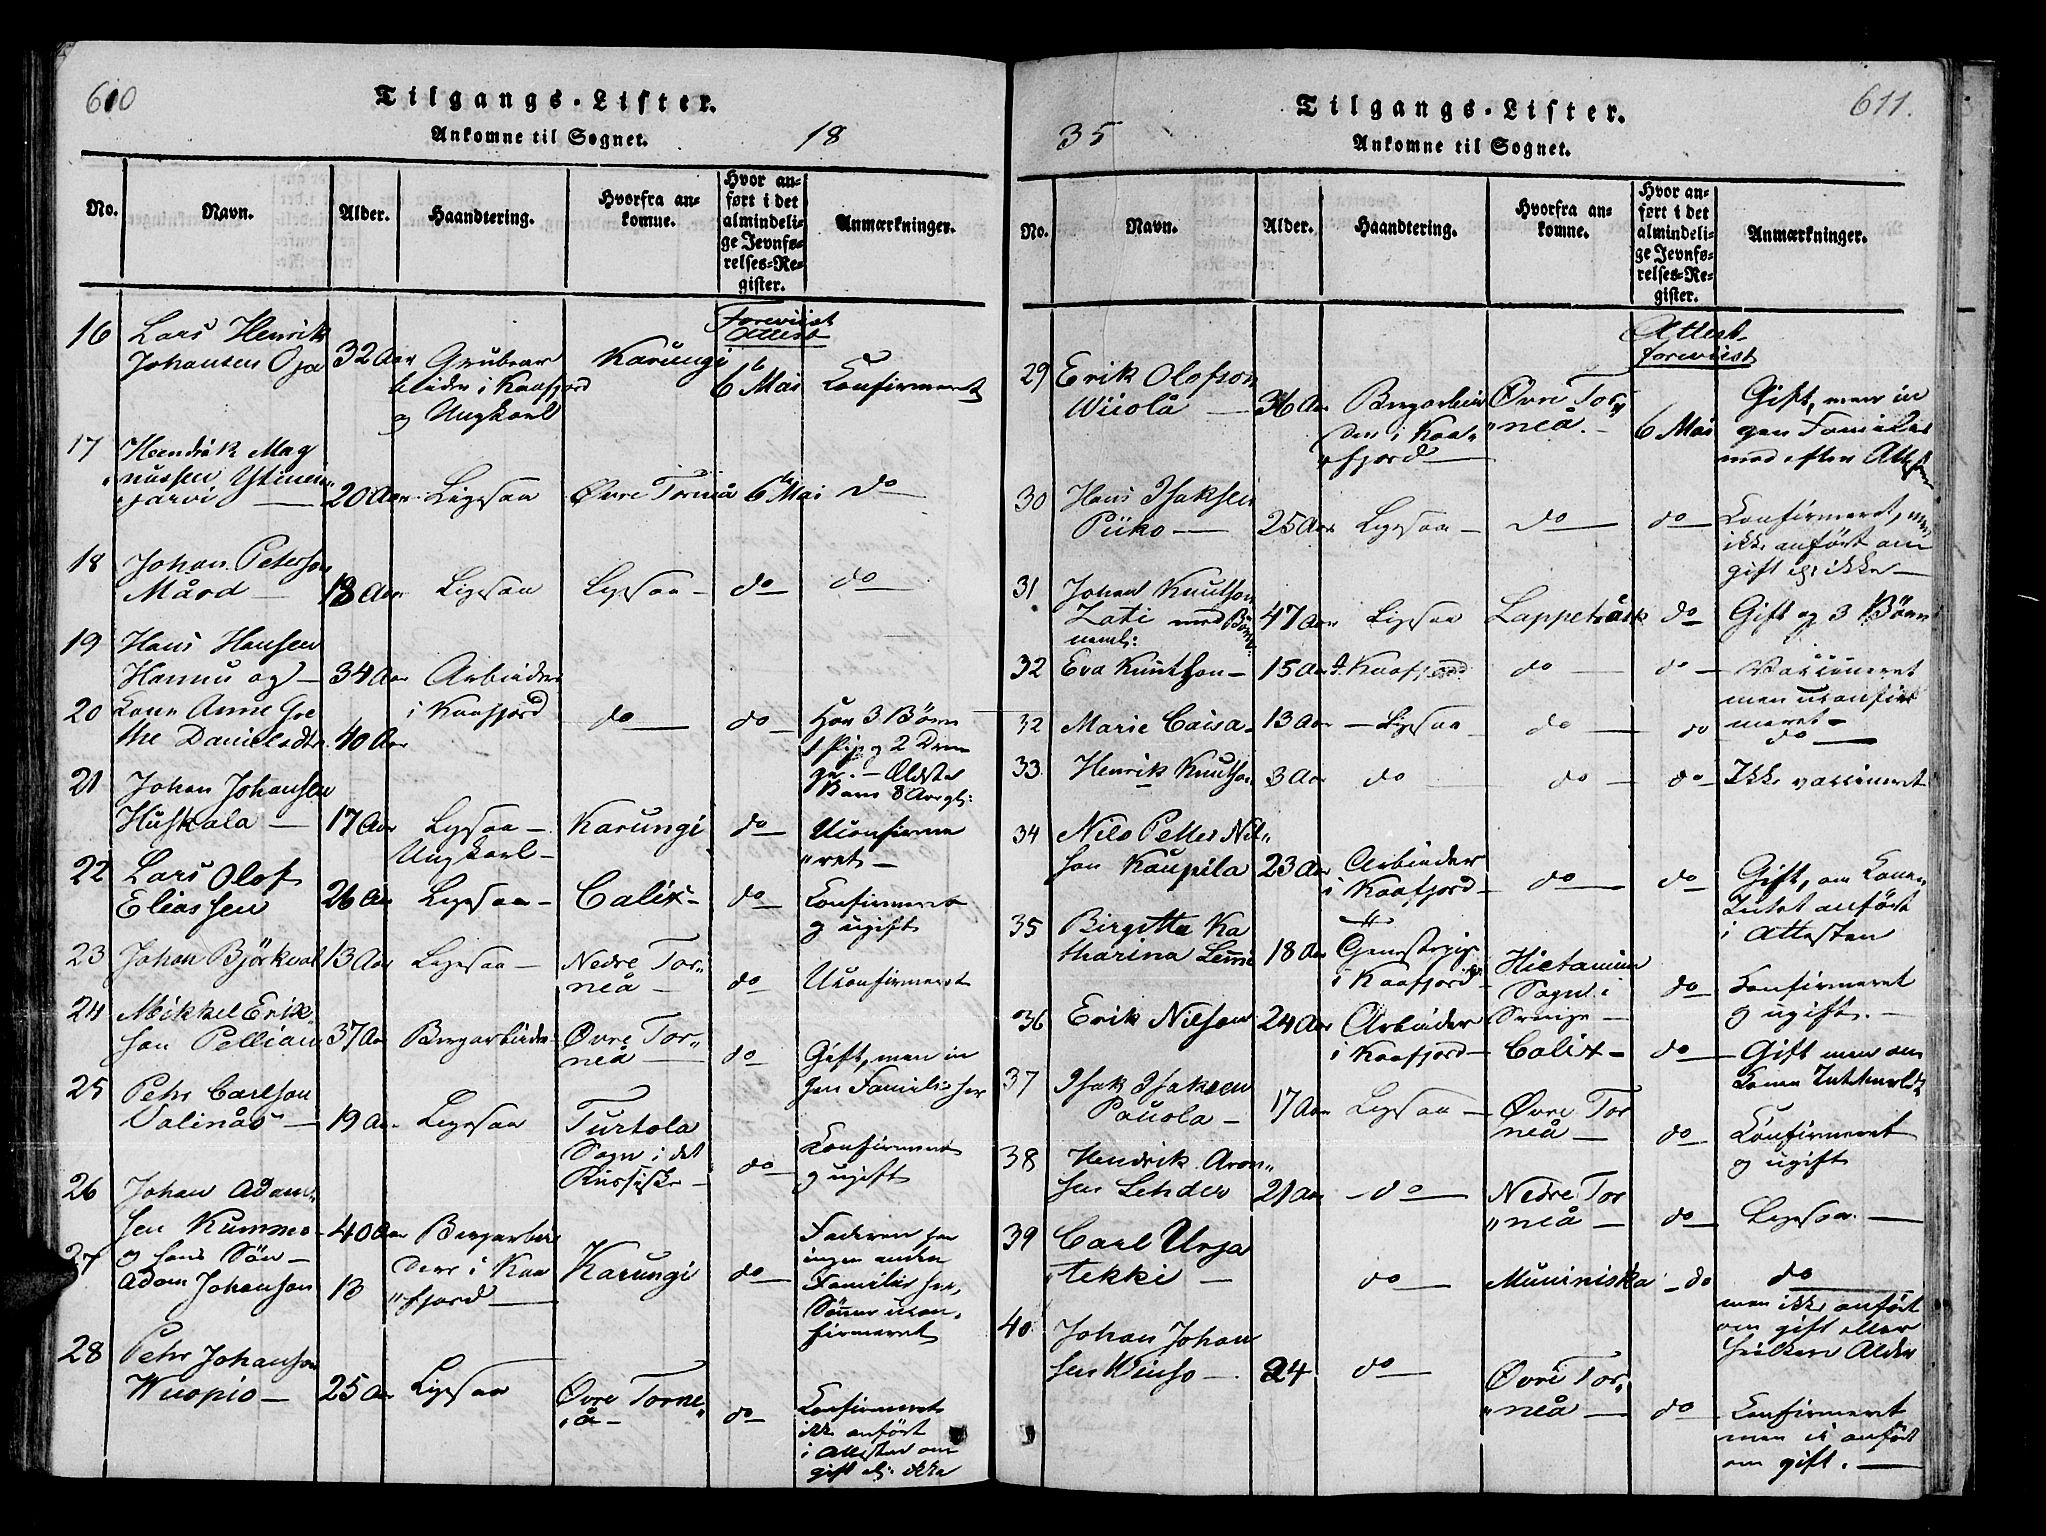 610
Tilgangs-Lister.
Ankomne til Sognet.
18
No.
Navn.
Alder.
Haandtering.
Hvorfra an-
komne.
Hvor an-
ført i det
almindeli-
ge Jevnfø-
relses-Re-
gister.
Anmærkninger.
Foreviist
Attest
16 Lars Henrik
Johansen Oja 32 Aar Grubear
beider i Kaafjord
og Ungkarl Karungi 6 Mai Confirmeret
17 Hendrik Mag
nussen
jarvi 20 Aar Ligesaa Øvre Torneå 6 Mai do
18 Johan Peterson
Mård 18 Aar Ligesaa Ligesaa do do
19 Hans Hansen
Hannu og 34 Aar Arbeider
i Kaafjord do do
20 Kone Anne Gre
the Danielsdtr 40 Aar Har 3 Børn
1 Pige og 2 Dren
ge. Ældste
Barn 8 Aar gl:
21 Johan Johansen
Huskala 17 Aar Ligesaa
Ungkarl Karungi do Uconfirme
ret
22 Lars Olof
Eliassen 26 Aar Ligesaa Calix do Confirmeret
og ugift
23 Johan Björkval 13 Aar Ligesaa Nedre Tor
neå do Uconfirmeret
24 Mikkel Erik
son 37 Aar Bergarbeider Øvre Tor
neå do Gift, men in
gen Familie her
25 Petr Carlson
Valinås 19 Aar Ligesaa Turtola
Sogn i det
Russiske do Confirmeret
og ugift
26 Johan Adam
sen Kummo 40 Aar Bergarbei
dere i Kaa
fjord Karungi do Faderen har
ingen anden
Familie her,
Sønnen ucon
firmeret
27 og hans Søn
Adam Johanson 13
28 Petr Johanson
Wuopio 25 Aar Ligesaa Øvre Torne
å do Confirmeret
ikke anført
i Attesten om
gift el: ikke
35
Tilgangs-Lister.
Ankomne til Sognet.
611.
No.
Navn.
Alder.
Haandtering.
Hvorfra an-
komne.
Hvor an-
ført i det
almindeli-
ge Jevnfø-
relses-Re-
gister.
Anmærkninger.
Attest
foreviist
29 Erik Olofson
36 Aar Bergarbei
der i Kaa
fjord Øvre Tor
neå. 6 Mai Gift, men in
gen Familie
med efter Attesten
30 Hans Isaksen
Piiko 25 Aar Ligesaa do do Confirmeret, men
ikke anført om
gift el: ikke
31 Johan Knutson
Lati med Børn
neml: 47 Aar Ligesaa Lappeträsk do Gift og 3 Børn
32 Eva Knutson 15 Aar Kaafjord do do Vaccineret
men uconfir
meret
32 Marie Caisa 13 Aar Ligesaa do do do
33 Henrik Knutson 3 Aar do do do Ikke vaccineret
34 Nils Petter Nil
son Kaupila 23 Aar Arbeider
i Kaafjord do do Gift, om Konen
Intet anført
i Attesten
35 Birgitta Ka
tharina 18 Aar Tjenestepige
i Kaafjord Hietaniemi
Sogn i
Sverige do Confirmeret
og ugift.
36 Erik Nilson 24 Aar Arbeider
i Kaafjord Calix do Gift men om
Konen
37 Isak Isaksen
Pauola 17 Aar Ligesaa Øvre Tor
neå do Confirmeret
og ugift
38 Hendrik Aron
sen Lehder 21 Aar do Nedre Tor
neå do Ligesaa
39 Carl
do Muoniniska do do
men ikke anført
om gift eller
hvilken Alder
40 Johan Johan
sen 24 do Øvre Tor
neå do Confirmeret
men ei anført
om gift.